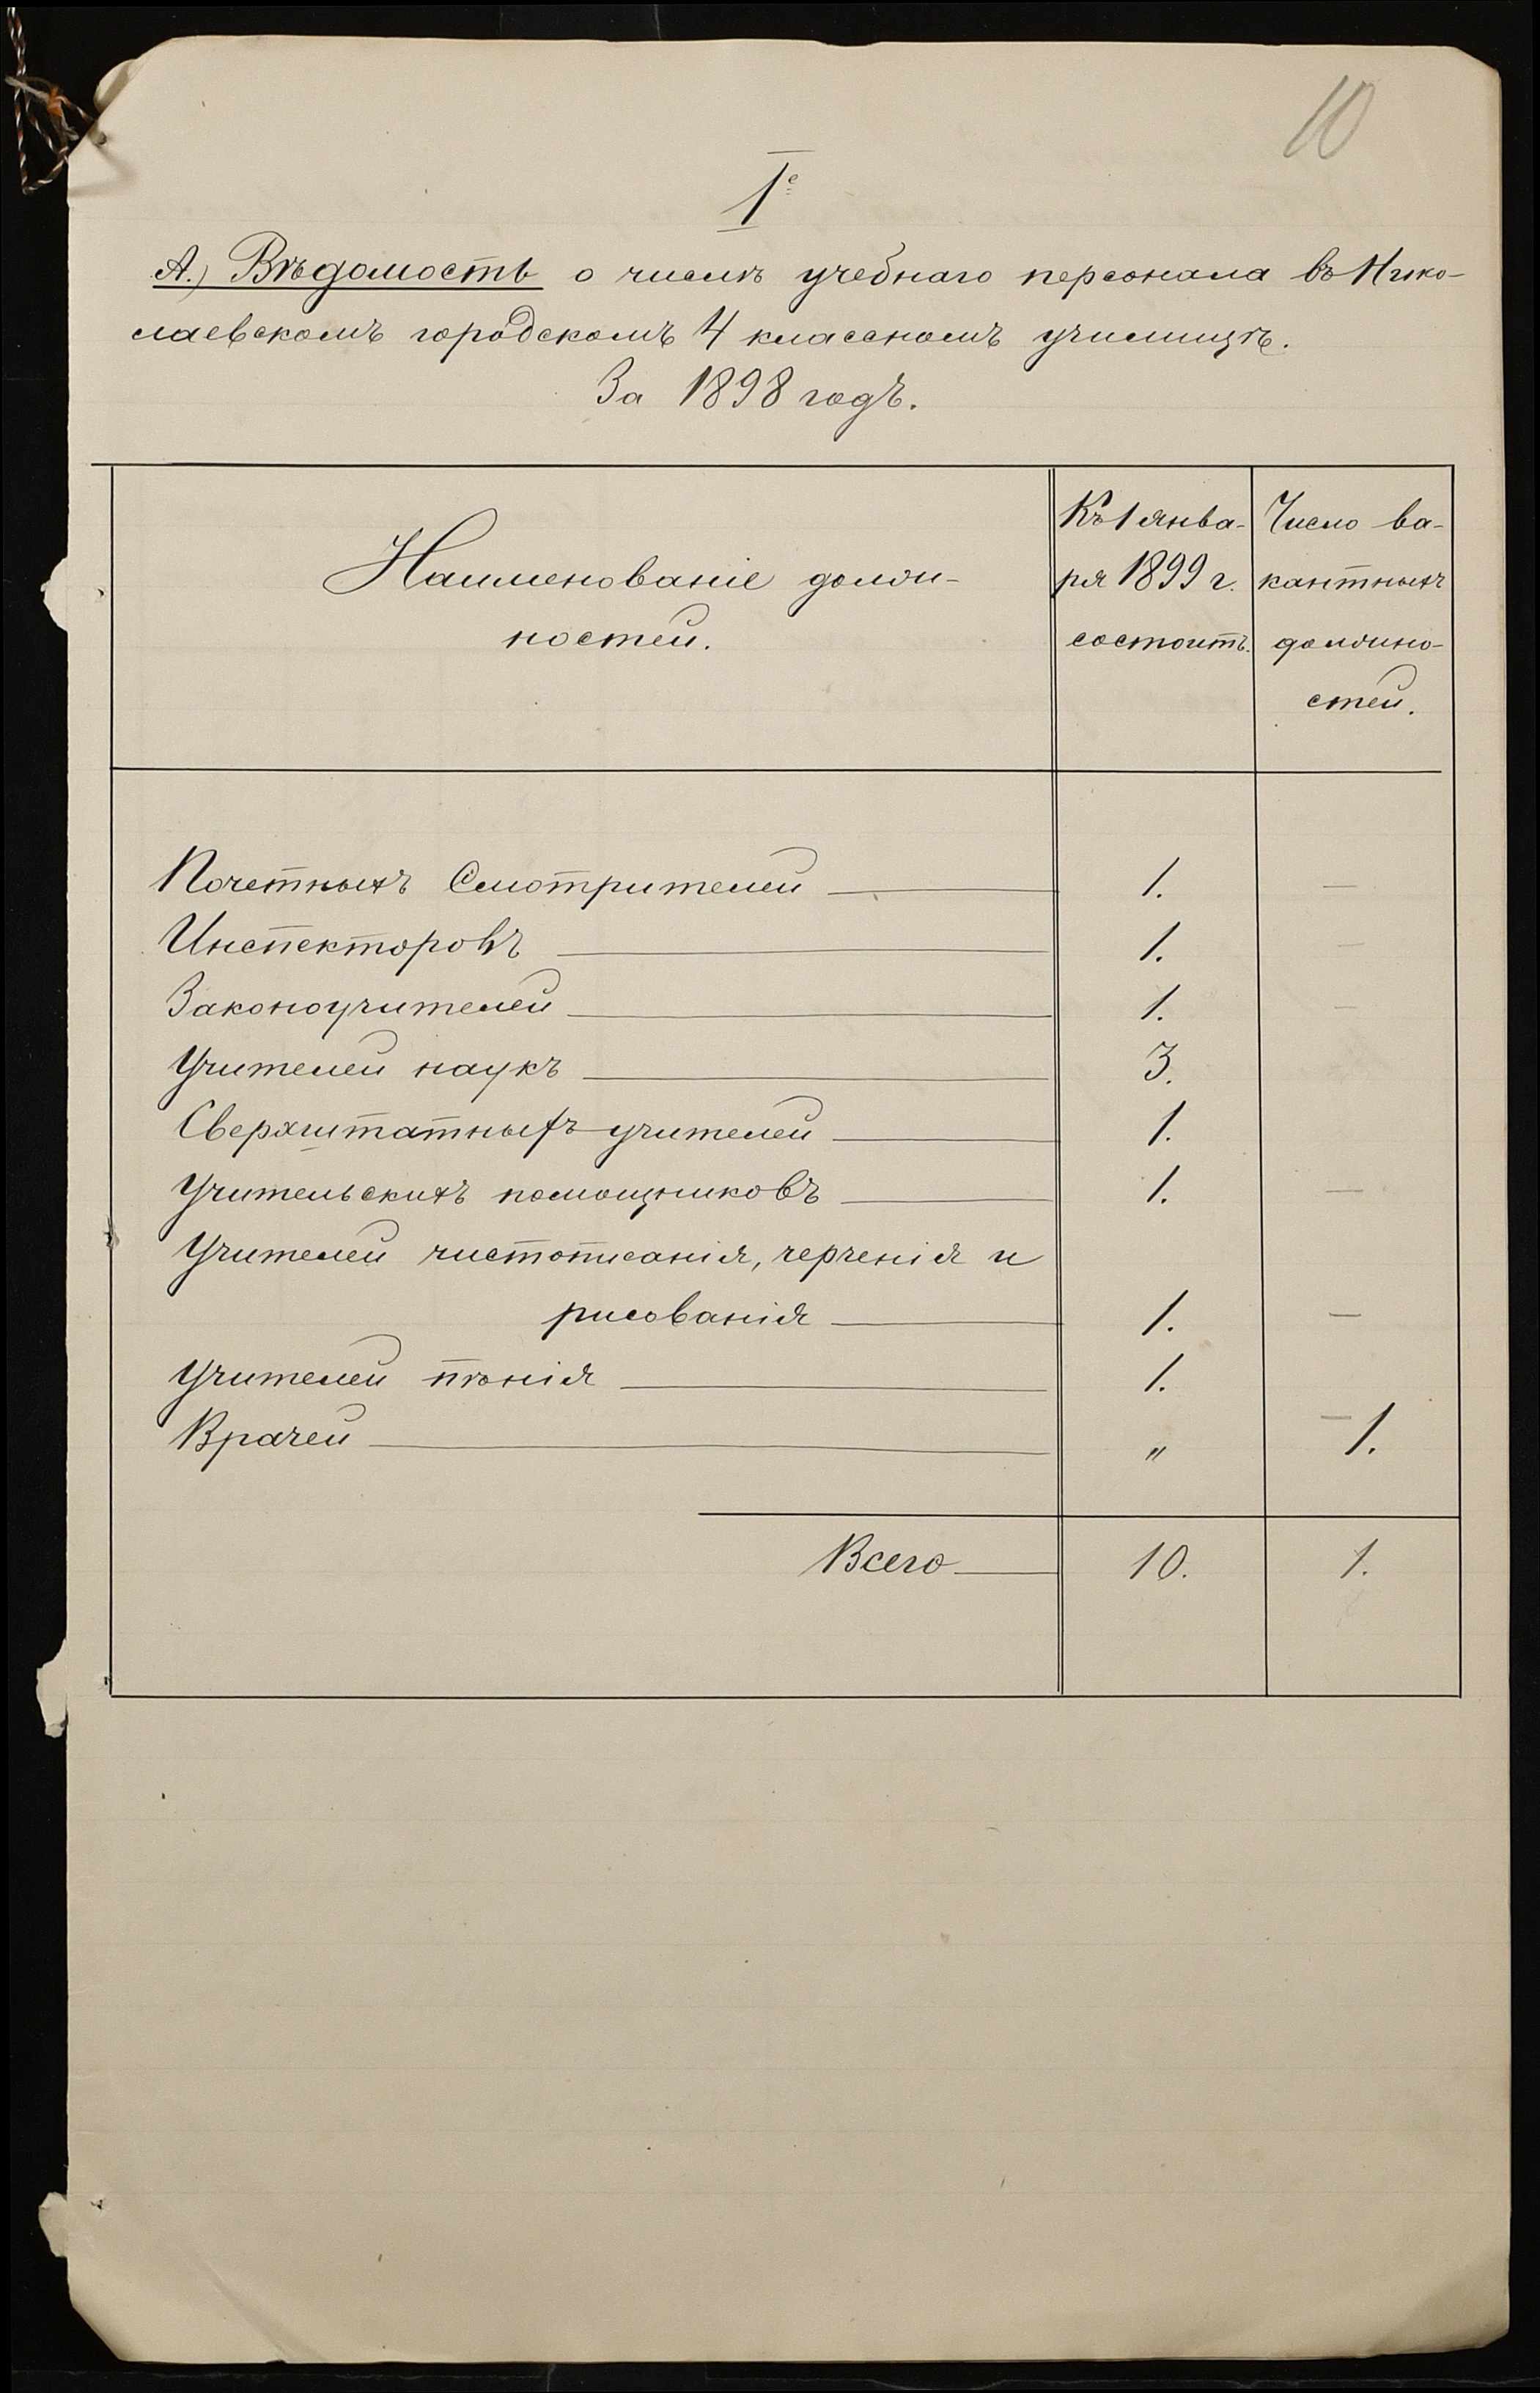 10
I.е
А.) Вѣдомость о числѣ учебнаго персонала въ Нико-
лаевскомъ городскомъ 4 классномъ училищѣ.
За 1898 годъ.
Наименованіе долж-
ностей.
Къ 1 янва-
ря 1899 г.
состоитъ.
Число ва-
кантныхъ
должно-
стей.
Почетныхъ Смотрителей — 1. —
Инспекторовъ — 1. —
Законоучителей — 1. —
Учителей наукъ — 3.
Сверхштатныхъ учителей — 1.
Учительскихъ помощниковъ — 1. —
Учителей чистописанія, черченія и
рисованія — 1. —
Учителей пѣнія — 1.
Врачей — " — 1.
Всего — 10. 1.